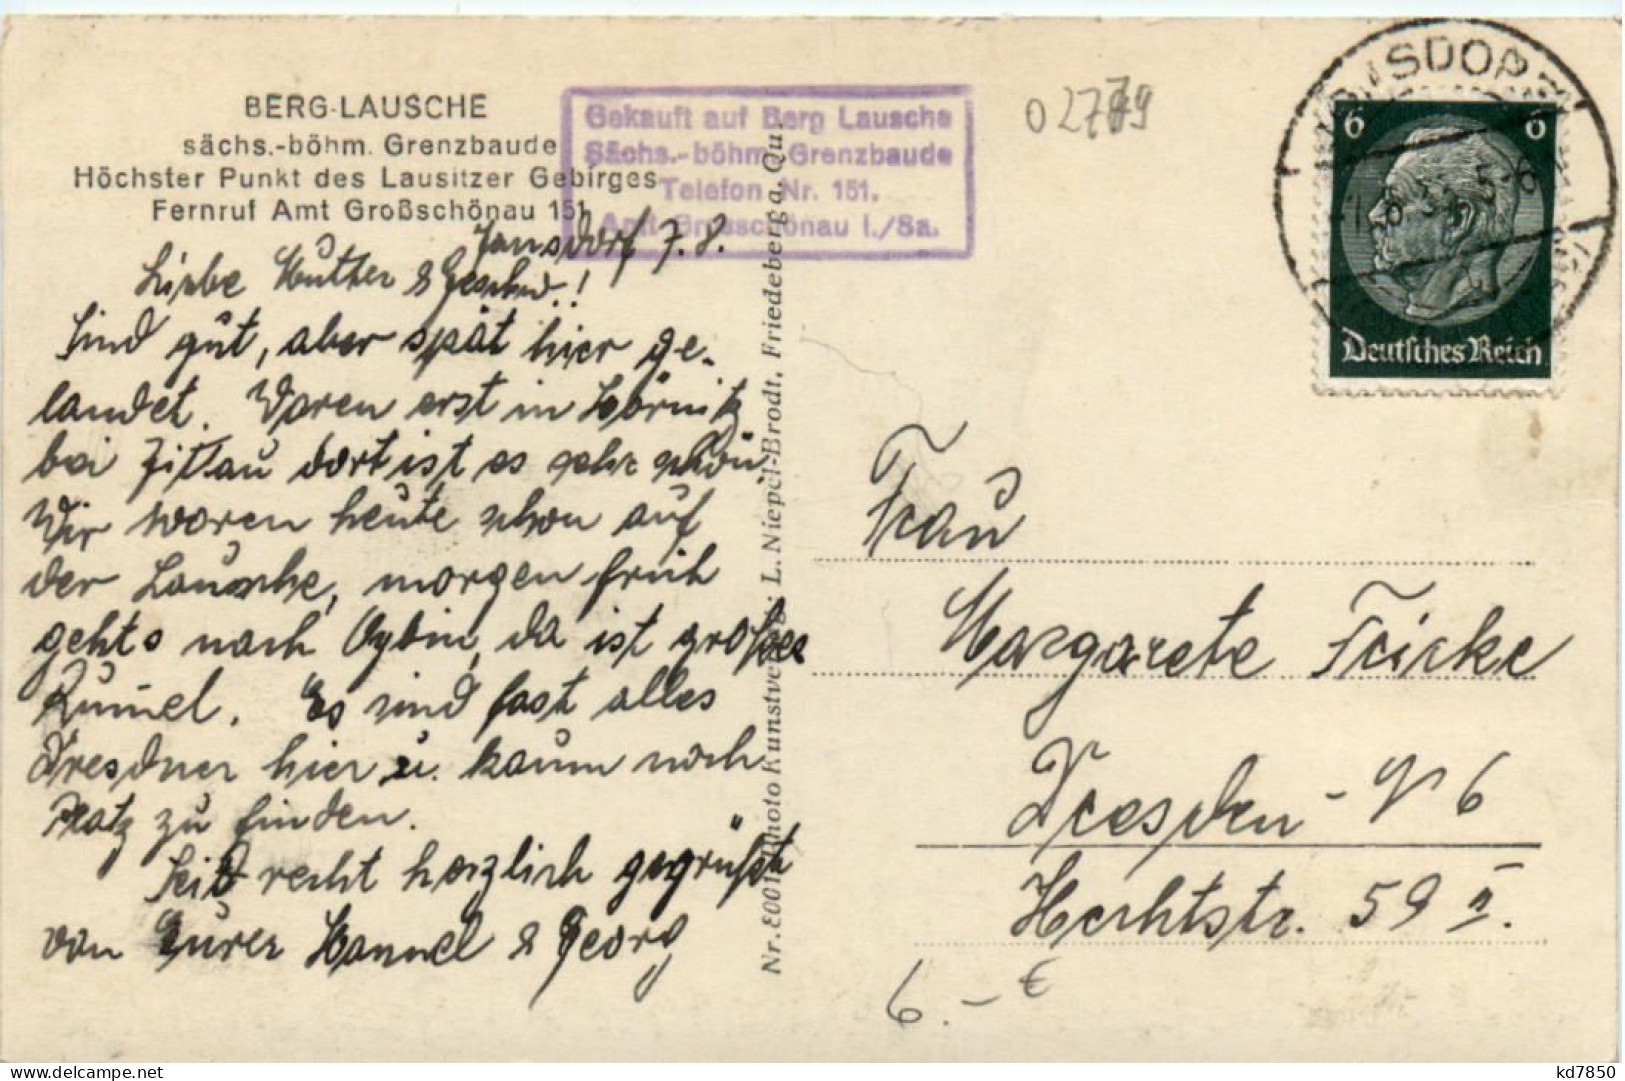 BERG-LAUSCHE
sächs.-böhm. Grenzbaude
Höchster Punkt des Lausitzer Gebirges
Fernruf Amt Großschönau 151
Gekauft auf Berg Lausche
Sächs.-böhm. Grenzbaude
Telefon Nr. 151.
Amt Grossschönau i./Sa.
Jonsdorf 7. 8.
Liebe Mutter & Geschw.!
Sind gut, aber spät hier ge-
landet. Waren erst in Hörnitz
bei Zittau dort ist es sehr schön
Wir waren heute schon auf
der Lausche, morgen früh
gehts nach Oybin, da ist großer
Rummel. Es sind fast alles
Dresdner hier u. kaum noch
Platz zu finden.
Seid recht herzlich gegrüßt
von Eurer Hannel & Georg
Photo Kunstverlag: L. Niepel-Brodt, Friedeberg a. Qu.
6 6
Deutsches Reich
Frau
Margarete Fricke
Dresden-N 6
Hechtstr. 59 II.
6.- €
kd7850